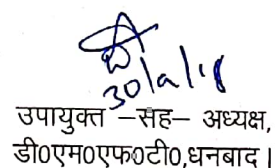 30/9/18
उपायुक्त –सह– अध्यक्ष,
डी०एम०एफ०टी०,धनबाद।